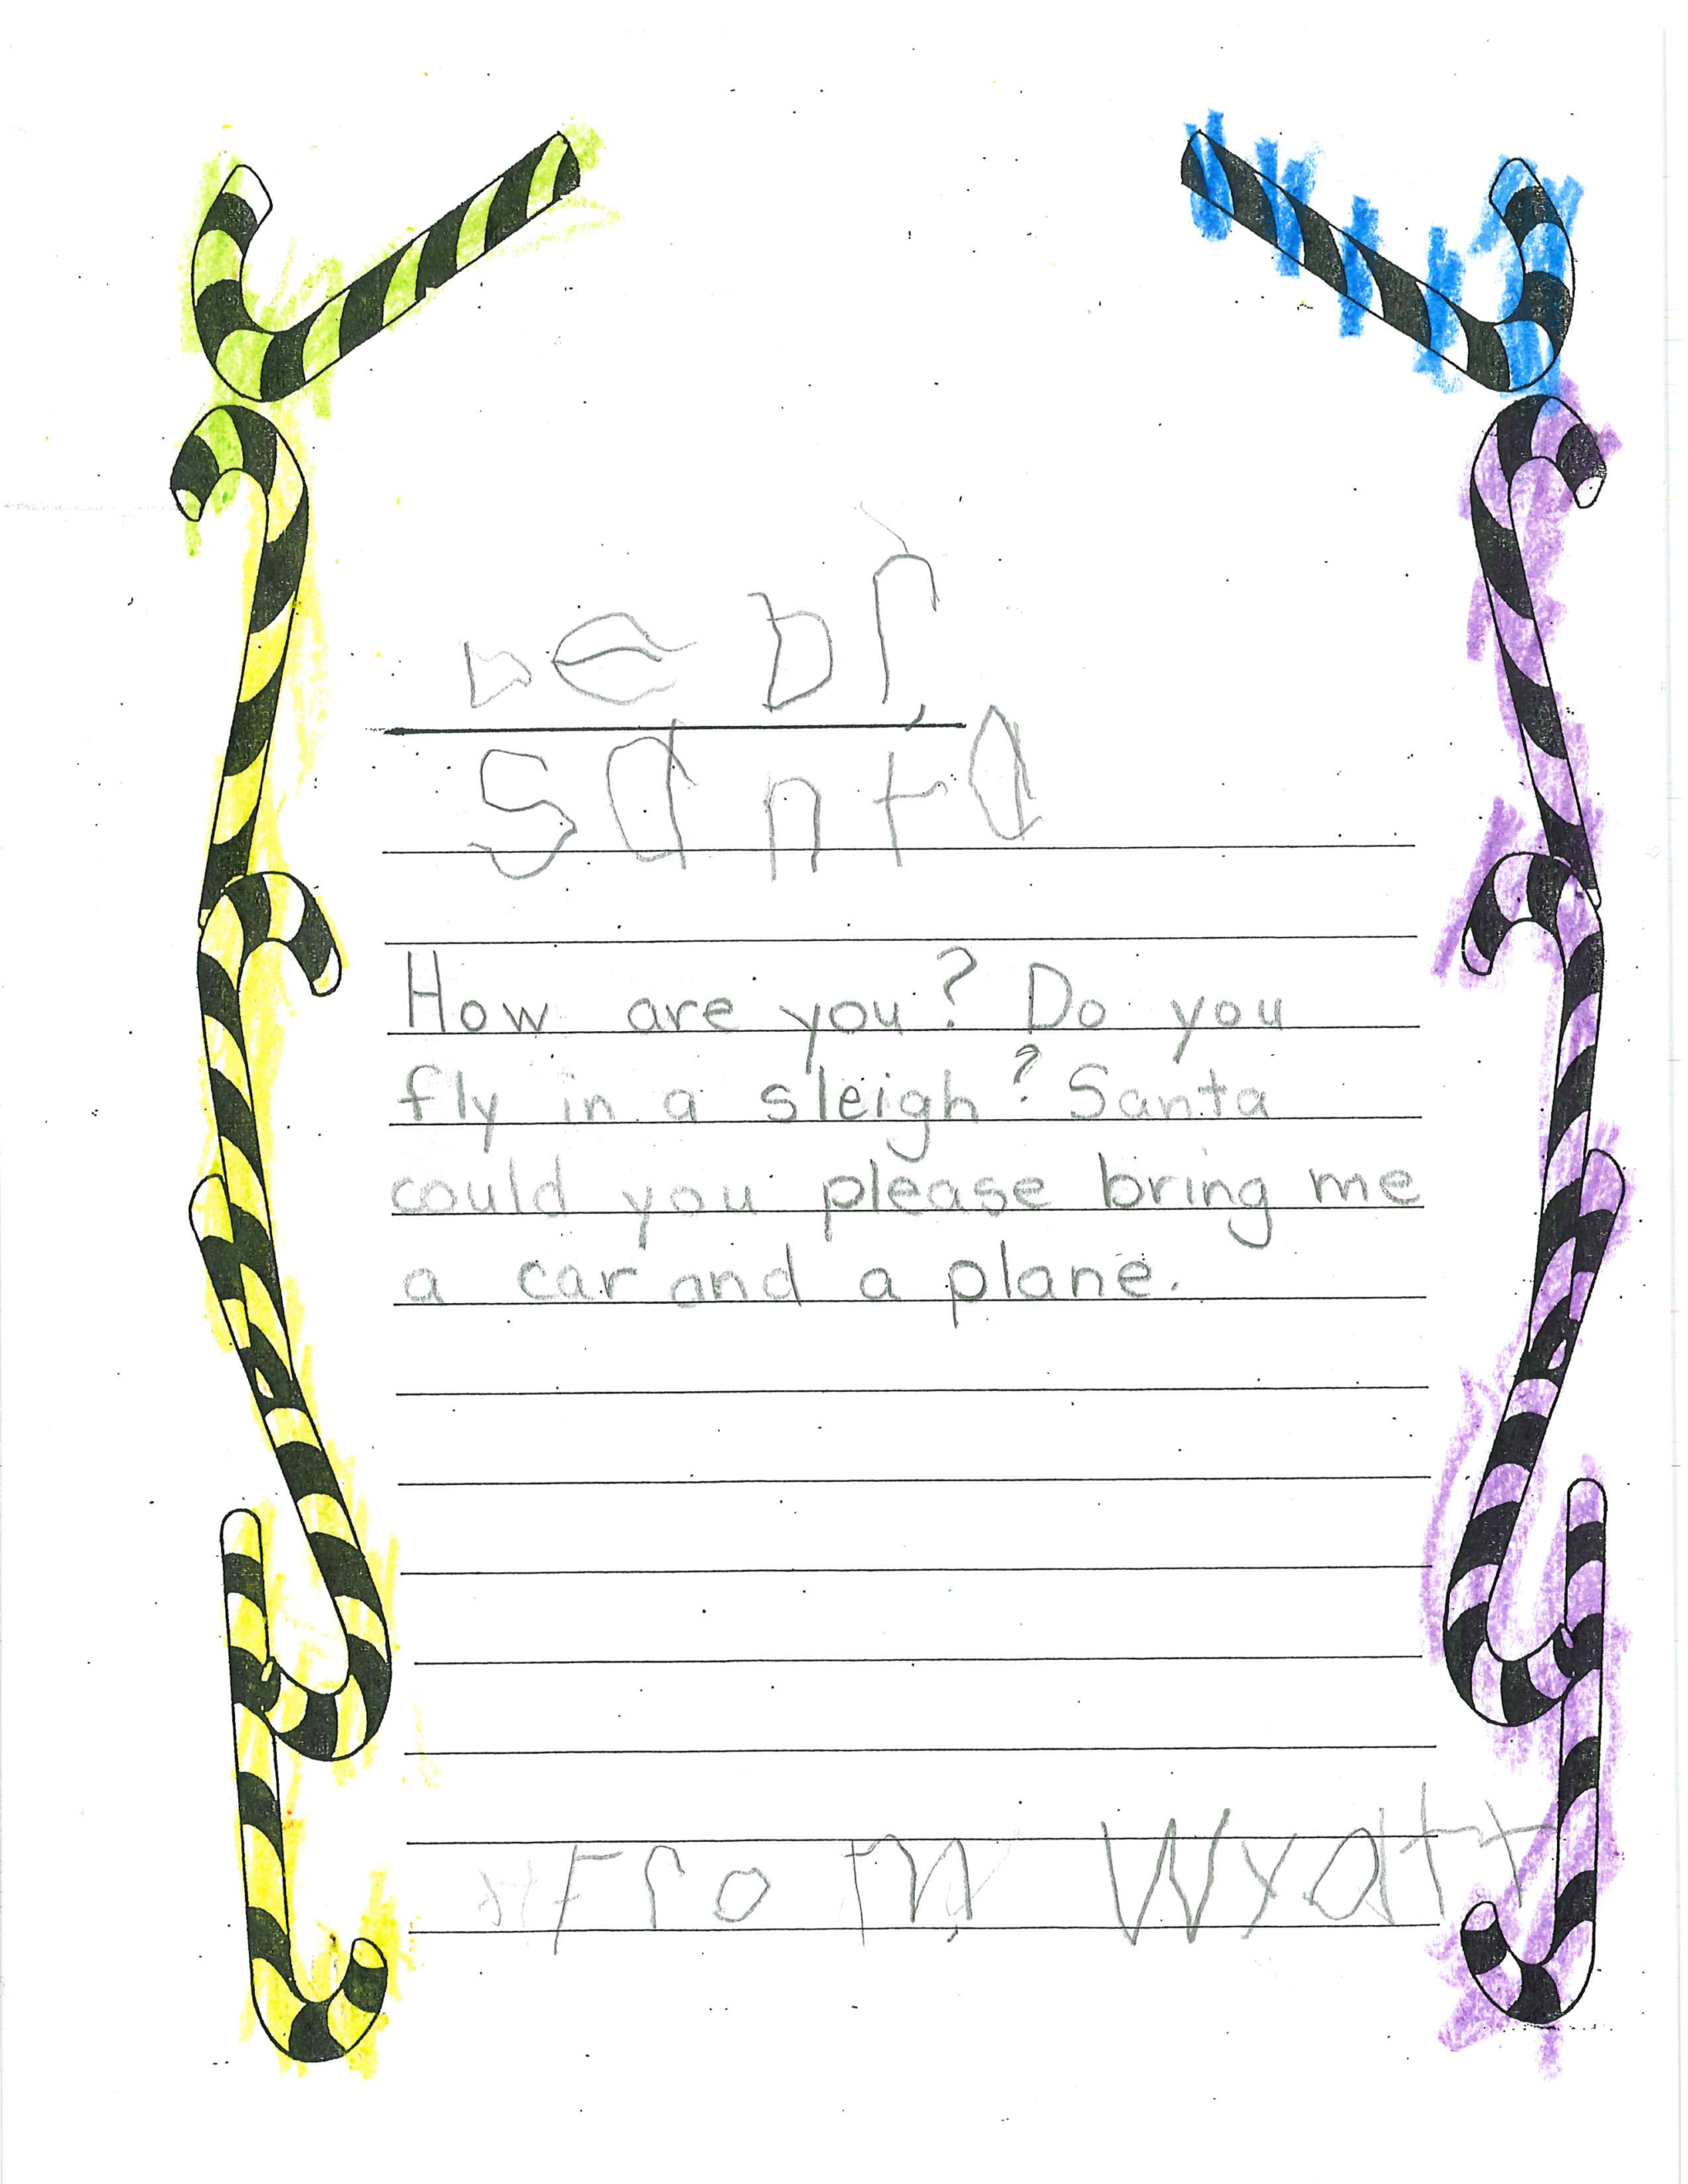 Debr,
Santa
How are you? Do you
fly in a sleigh? Santa
could you please bring me
a car and a plane.
From Wyatt